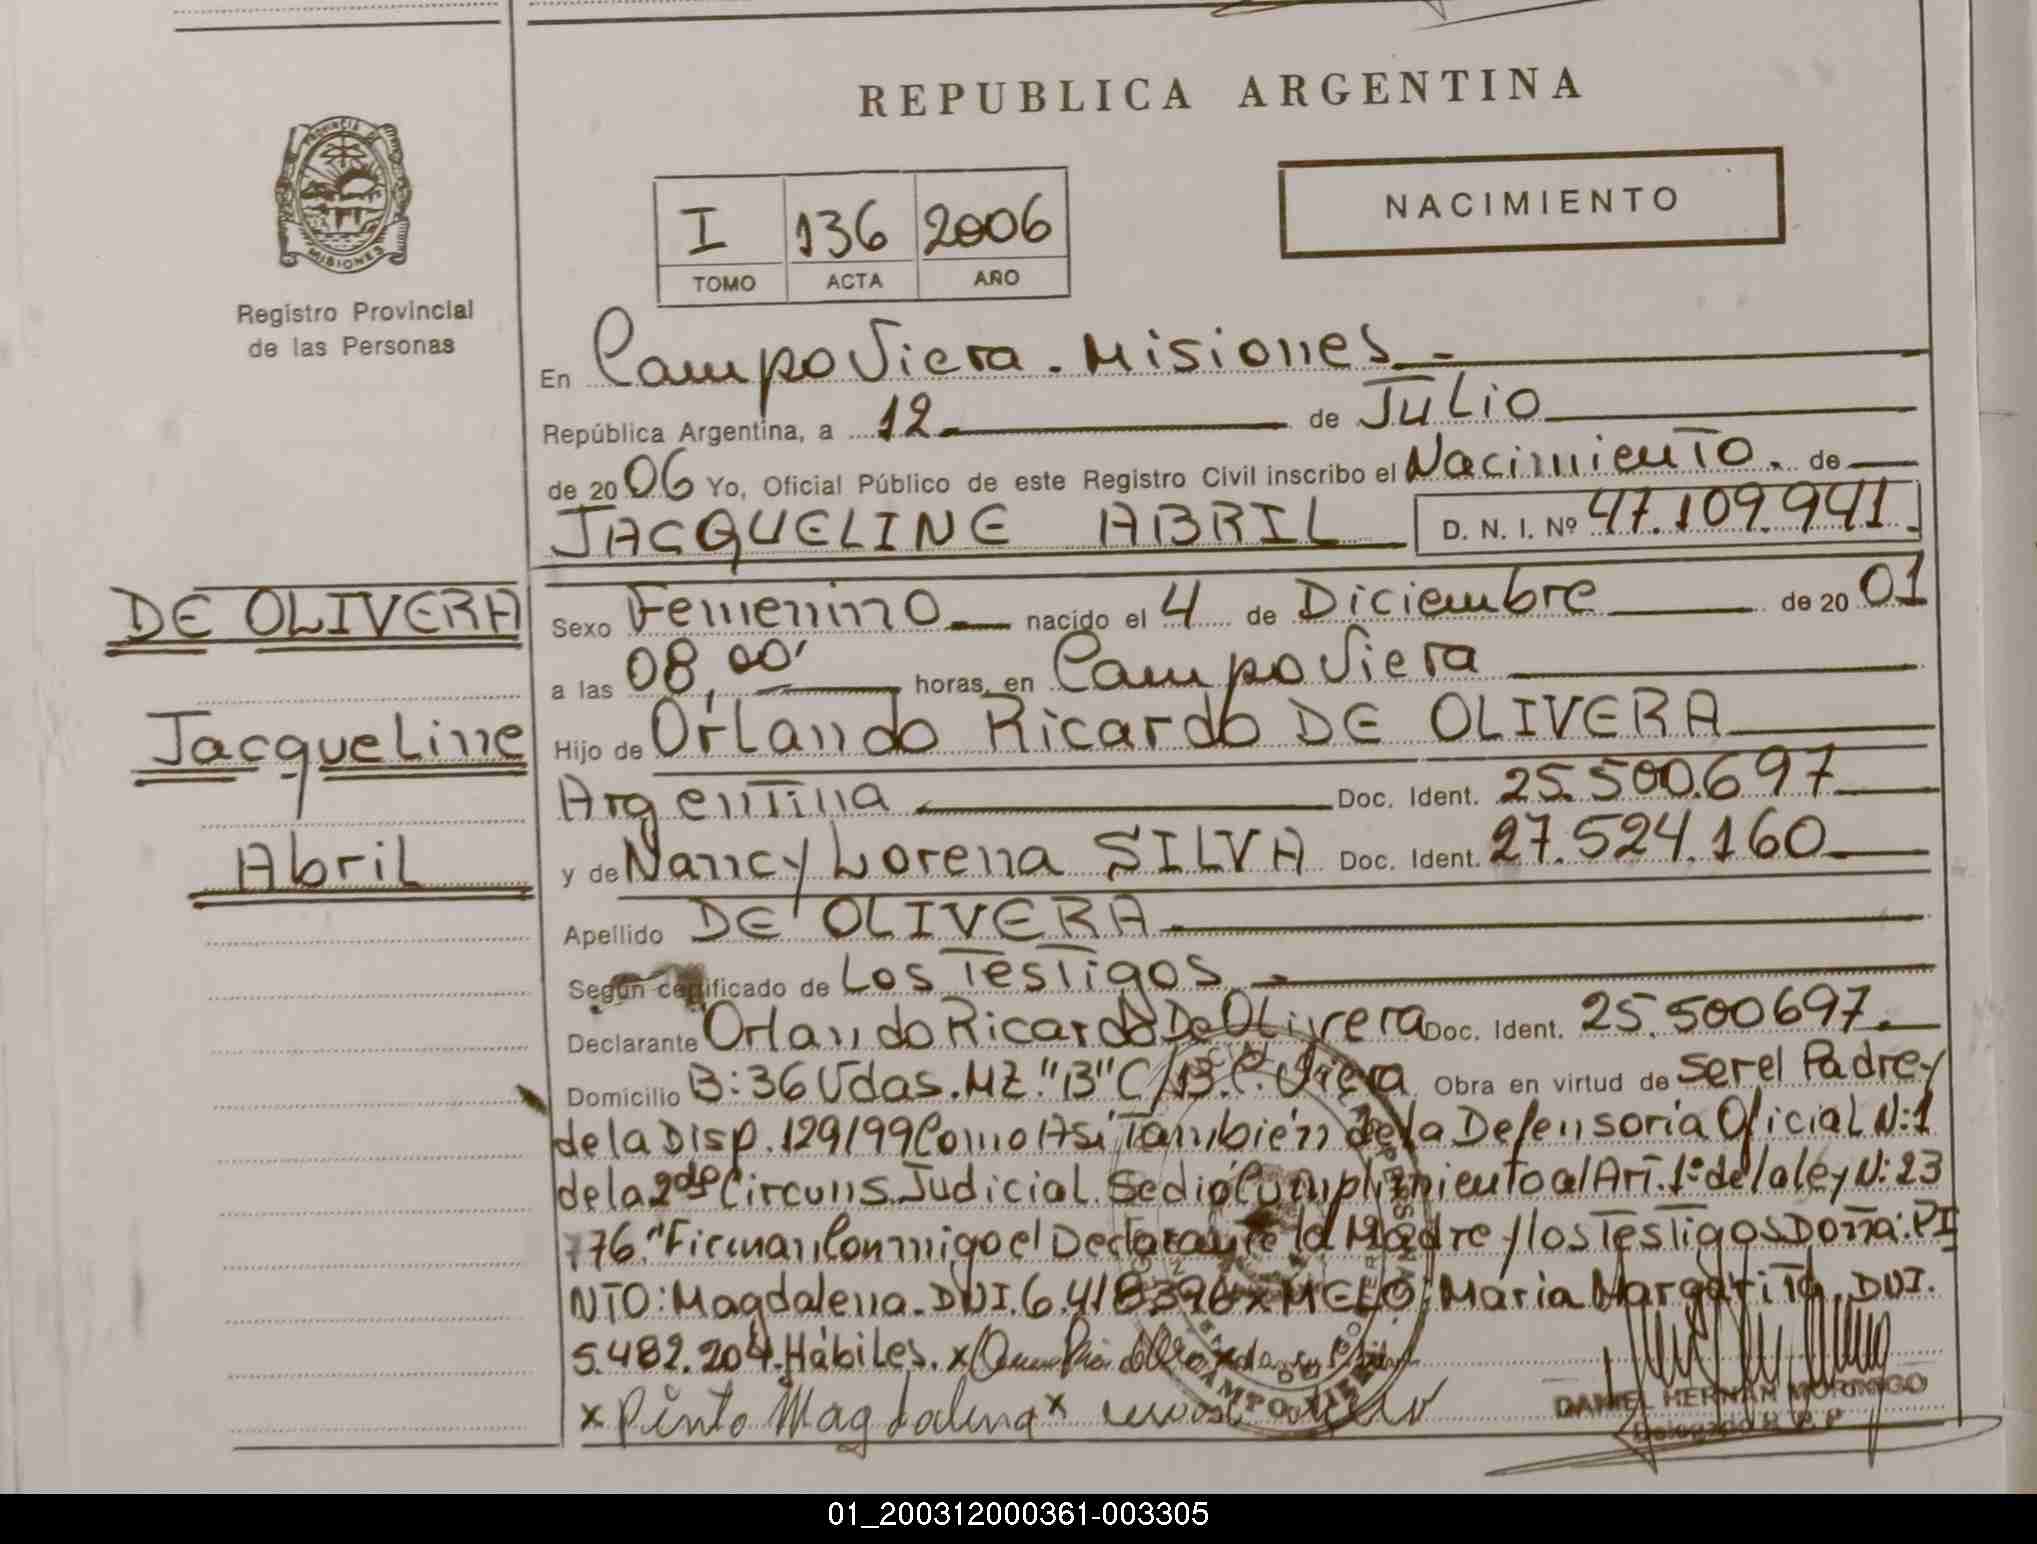 REPUBLICA ARGENTINA
NACIMIENTO
I 136 2006
TOMO ACTA AÑO
PROVINCIA DE MISIONES
Registro Provincial
de las Personas
En Campo Viera. Misiones
República Argentina, a 12 de Julio
de 2006 Yo, Oficial Público de este Registro Civil inscribo el Nacimiento. de
JACQUELINE ABRIL D. N. I. Nº 47.109.941.
DE OLIVERA
Jacqueline
Abril
Sexo Femenino nacido el 4 de Diciembre de 2001
a las 08,00' horas, en Campo Viera
Hijo de Orlando Ricardo DE OLIVERA
Argentina Doc. Ident. 25.500.697
y de Nancy Lorena SILVA Doc. Ident. 27.524.160
Apellido DE OLIVERA
Según certificado de Los Testigos
Declarante Orlando Ricardo De Olivera Doc. Ident. 25.500697.
Domicilio B:36 Vdas. MZ."B" C/13.C. Viera Obra en virtud de ser el Padre y
de la Disp. 129/99 Como Así También de la Defensoría Oficial N:1
de la 2da Circuns. Judicial. Se dió Cumplimiento al Art. 1º de la ley N: 23
776." Firman Conmigo el Declarante la Madre y los Testigos Doña: PI
NTO: Magdalena. DNI. 6.418396 x MELO: María Margarita. DNI.
5.482.204. Hábiles. x
x Pinto Magdalena x
CAMPO VIERA
DANIEL HERNAN MORINIGO
Delegado R. P. P
01_200312000361-003305